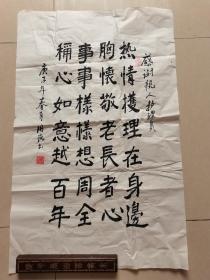 感谢枫人护理员
热情護理在身邊
胸懷敬老長者心
事事樣樣想周全
稱心如意越百年
庚子年春月